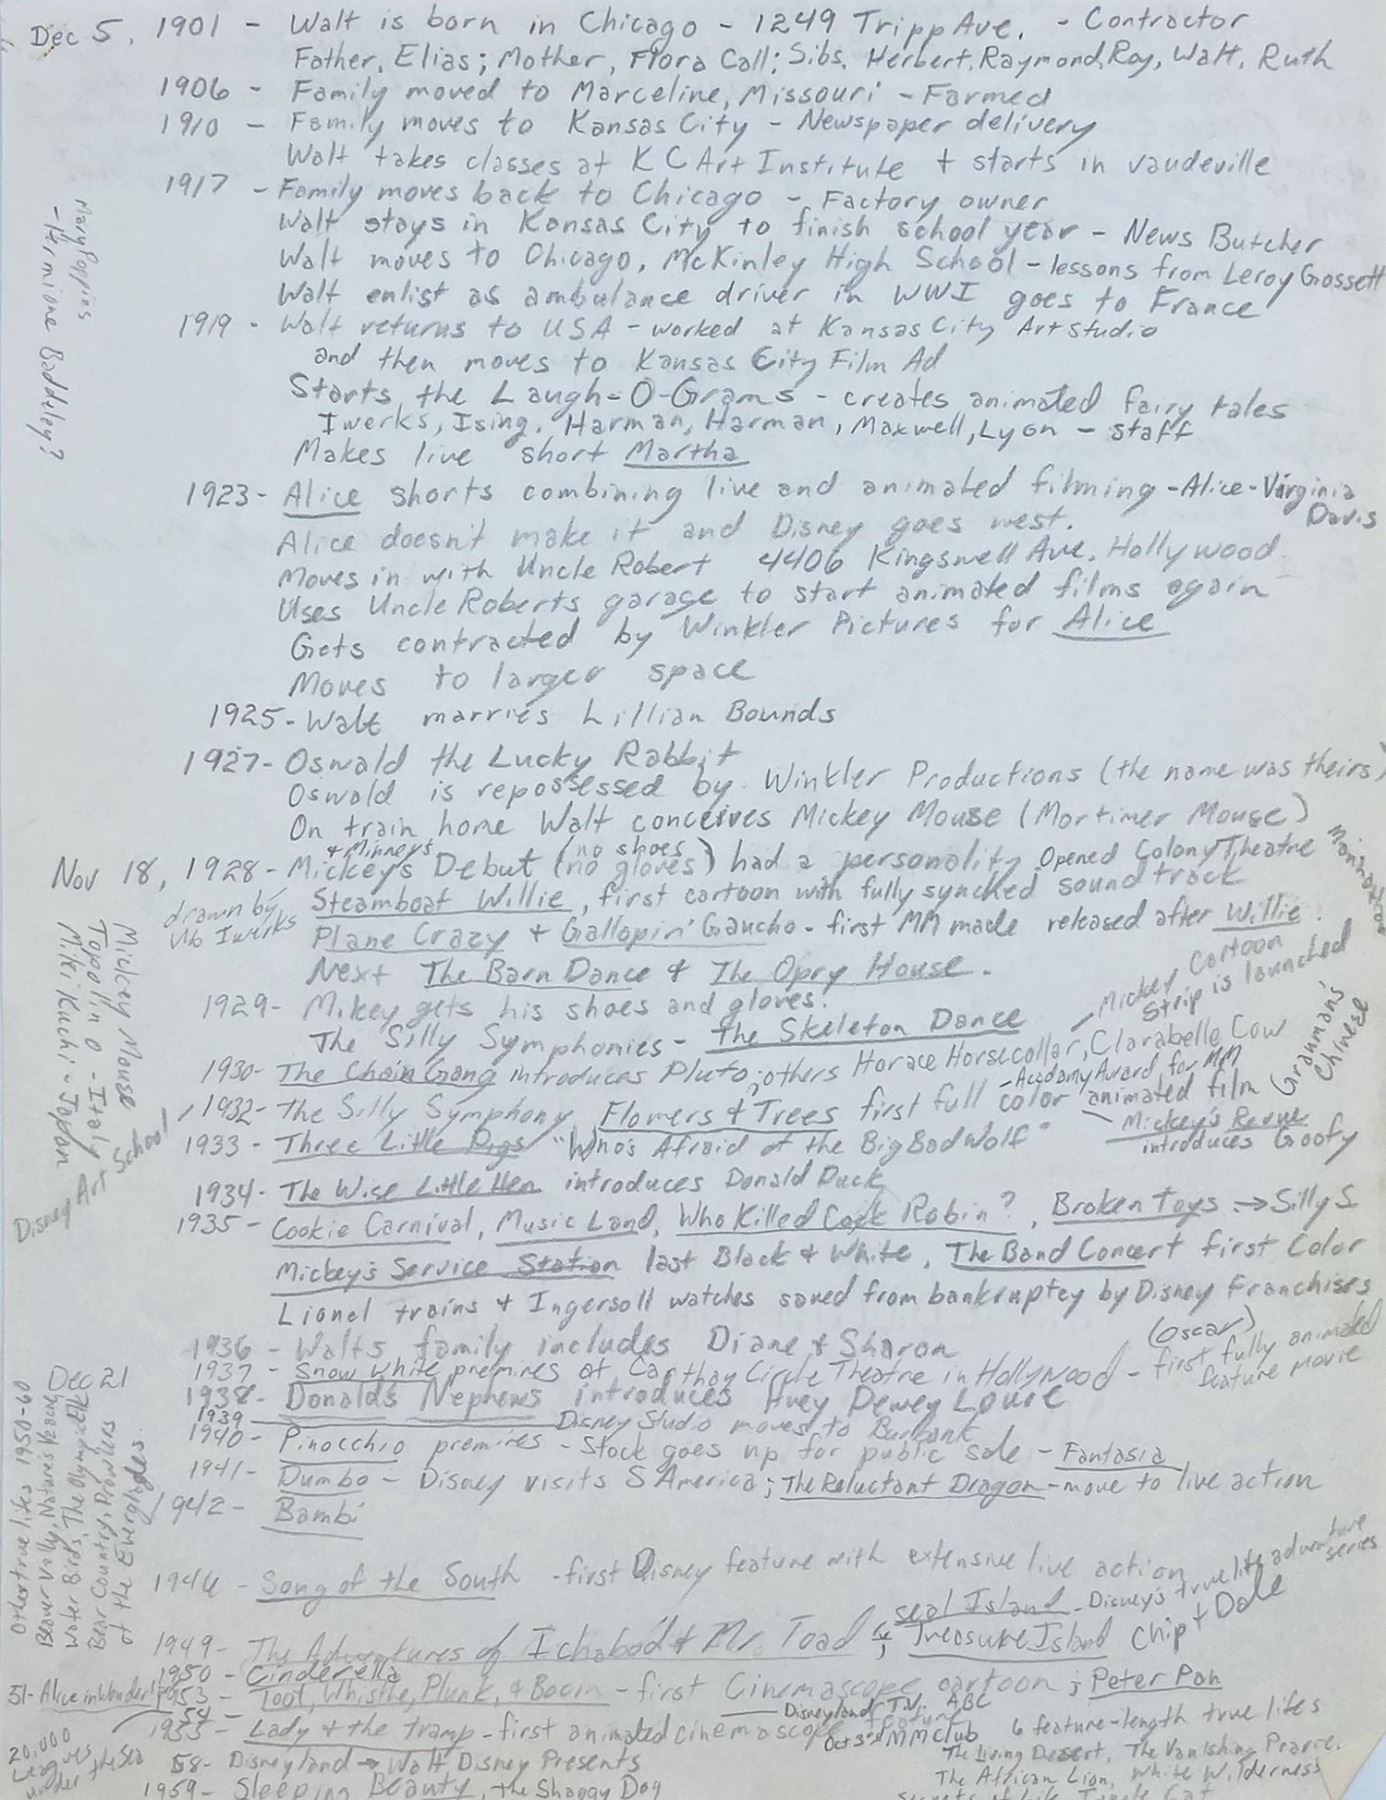 Dec 5, 1901 - Walt is born in Chicago - 1249 Tripp Ave. - Contractor
Father, Elias; Mother, Flora Call; Sibs, Herbert, Raymond, Roy, Walt, Ruth
1906 - Family moved to Marceline, Missouri - Farmed
1910 - Family moves to Kansas City - Newspaper delivery
Walt takes classes at K C Art Institute + starts in vaudeville
1917 - Family moves back to Chicago - Factory owner
Walt stays in Kansas City to finish school year - News Butcher
Walt moves to Chicago, McKinley High School - lessons from Leroy Gossett
Walt enlist as ambulance driver in WWI goes to France
1919 - Walt returns to USA - worked at Kansas City Art Studio
and then moves to Kansas City Film Ad
Starts the Laugh-O-Grams - creates animated fairy tales
Iwerks, Ising, Harman, Harman, Maxwell, Lyon - staff
Makes live short Martha
Mary Poppins
- Hermione Baddeley?
1923 - Alice shorts combining live and animated filming - Alice - Virginia
Davis
Alice doesn't make it and Disney goes west.
Moves in with Uncle Robert 4406 Kingswell Ave. Hollywood.
Uses Uncle Roberts garage to start animated films again
Gets contracted by Winkler Pictures for Alice
Moves to larger space
1925 - Walt marries Lillian Bounds
1927 - Oswald the Lucky Rabbit
Oswald is repossessed by Winkler Productions (the name was theirs)
On train home Walt conceives Mickey Mouse (Mortimer Mouse)
+ Minney's (no shoes
Nov 18, 1928 - Mickey's Debut no gloves) had a personality, Opened Colony Theatre
Manhattan
drawn by
Ub Iwerks
Steamboat Willie, first cartoon with fully synched sound track
Plane Crazy + Gallopin' Gaucho - first MM made released after Willie.
Next The Barn Dance & The Opry House.
Mickey Mouse
Topolino - Italy
Miki Kuchi - Japan
1929 - Mikey gets his shoes and gloves.
Mickey Cartoon
Strip is launched
The Silly Symphonies - The Skeleton Dance
1930 - The Chain Gang introduces Pluto; others Horace Horsecollar, Clarabelle Cow
Grauman's
Chinese
- Academy Award for MM
1932 - The Silly Symphony Flowers & Trees first full color animated film
Mickey's Revue
introduces Goofy
Disney Art School
1933 - Three Little Pigs "Who's Afraid of the Big Bad Wolf"
1934 - The Wise Little Hen introduces Donald Duck
1935 - Cookie Carnival, Music Land, Who Killed Cock Robin?, Broken Toys → Silly S
Mickey's Service Station last Black & White, The Band Concert first Color
Lionel trains & Ingersoll watches saved from bankruptcy by Disney Franchises
1936 - Walts family includes Diane & Sharon
(Oscar)
Dec 21 1937 - Snow White premires at Carthay Circle Theatre in Hollywood - first fully animated
feature movie
1938 - Donald's Nephews introduces Huey Dewey Louie
1939 Disney Studio moves to Burbank
1940 - Pinocchio premires - Stock goes up for public sale - Fantasia
1941 - Dumbo - Disney visits S America; The Reluctant Dragon - move to live action
1942 - Bambi
Other true lifes 1950-60
Beaver Vally, Natures
Water Birds, The Olympic Elk
Bear Country, Prowlers
of the Everglades.
1946 - Song of the South - first Disney feature with extensive live action
Seal Island - Disney's true life adventure
series
1949 - The Adventures of Ichabod & Mr. Toad; Treasure Island Chip + Dale
1950 - Cinderella
51 - Alice in Wonderland
53 - Toot, Whistle, Plunk, & Boom - first Cinemascope cartoon; Peter Pan
54 - Disneyland T.V. ABC
20,000
Leagues
under the Sea
1955 - Lady & the tramp - first animated cinemascope feature
Oct 3rd MM Club
58 - Disneyland → Walt Disney Presents
1959 - Sleeping Beauty, The Shaggy Dog
6 feature-length true lifes
The Living Desert, The Vanishing Prarie,
The African Lion, White Wilderness
Secrets of Life, Jungle Cat